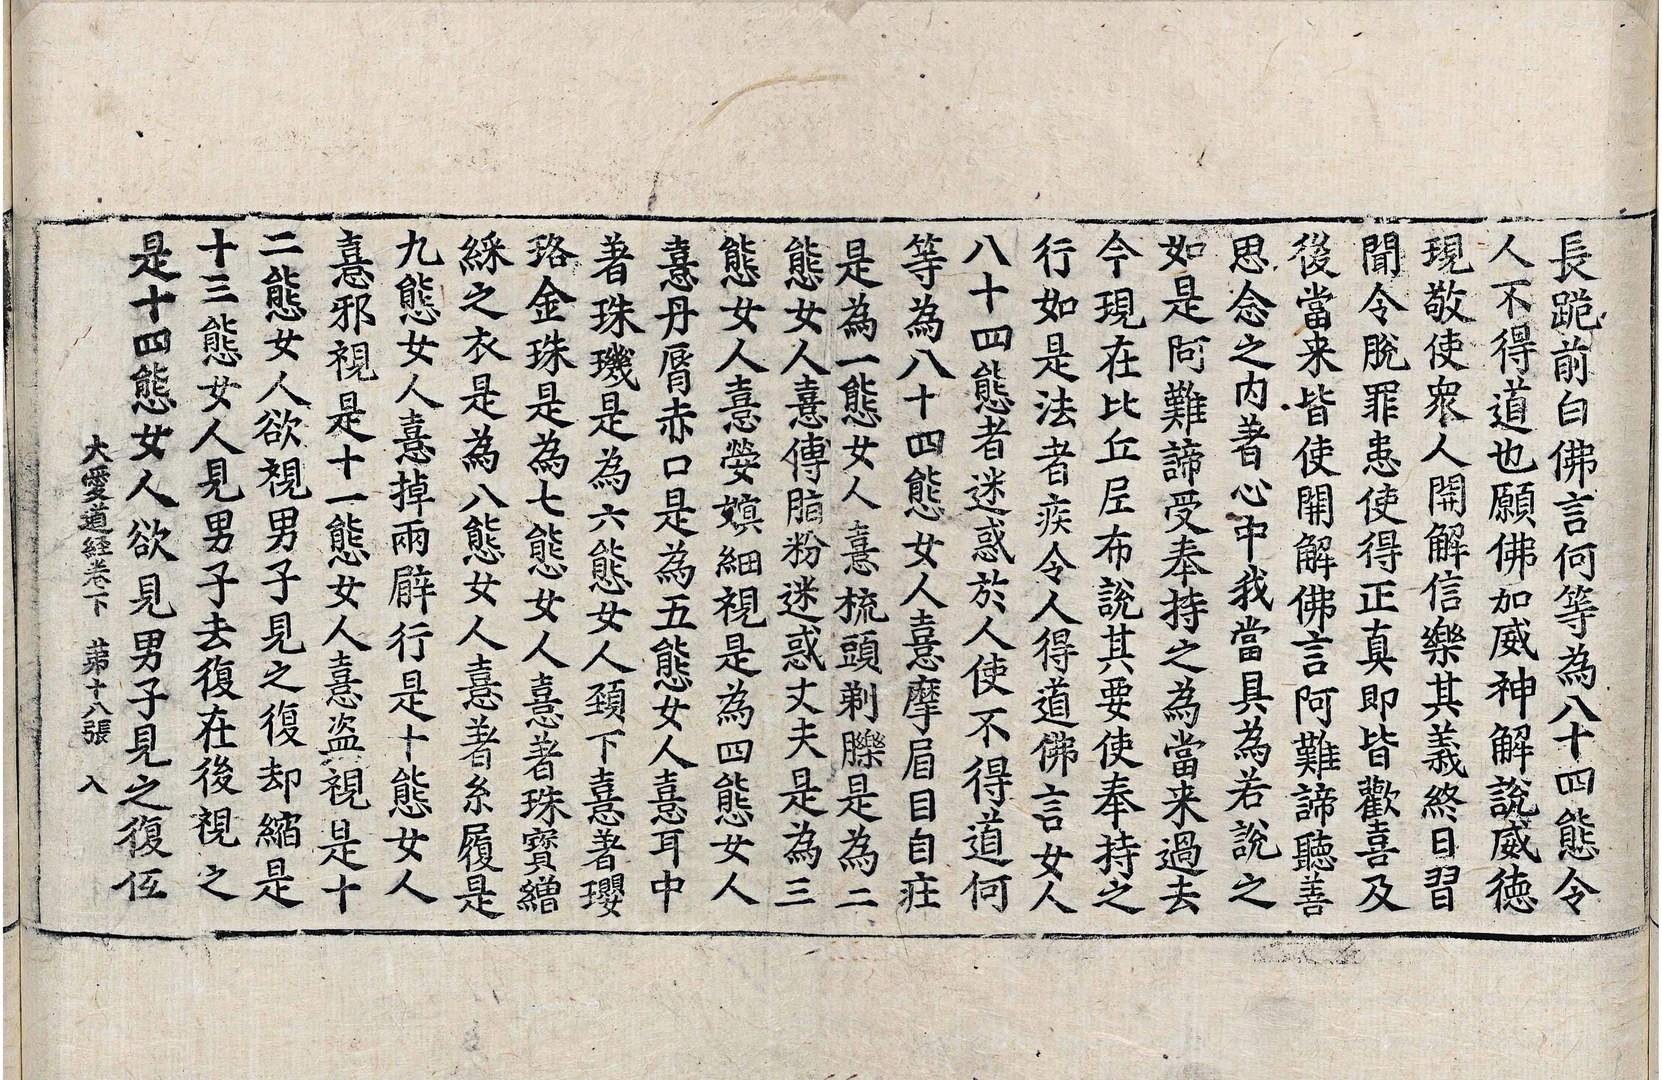 長跪前白佛言何等為八十四態令
人不得道也願佛加威神解說威德
現敬使衆人開解信樂其義終日習
聞令脫罪恚使得正真即皆歡喜及
後當来皆使開解佛言阿難諦聽善
思念之内著心中我當具為若說之
如是阿難諦受奉持之為當来過去
今現在比丘𡰱布說其要使奉持之
行如是法者疾令人得道佛言女人
八十四態者迷惑於人使不得道何
等為八十四態女人憙摩眉目自疰
是為一態女人憙梳頭剃㸅是為二
態女人憙傅脂粉迷惑丈夫是為三
態女人憙嫈嫇細視是為四態女人
憙丹脣赤口是為五態女人憙耳中
著珠璣是為六態女人頚下憙著瓔
珞金珠是為七態女人憙著珠寳繒
綵之衣是為八態女人憙著糸履是
九態女人憙掉兩臂行是十態女人
憙邪視是十一態女人憙盗視是十
二態女人欲視男子見之復却縮是
十三態女人見男子去復在後視之
是十四態女人欲見男子見之復伍
大愛道經卷下 苐十八張 入